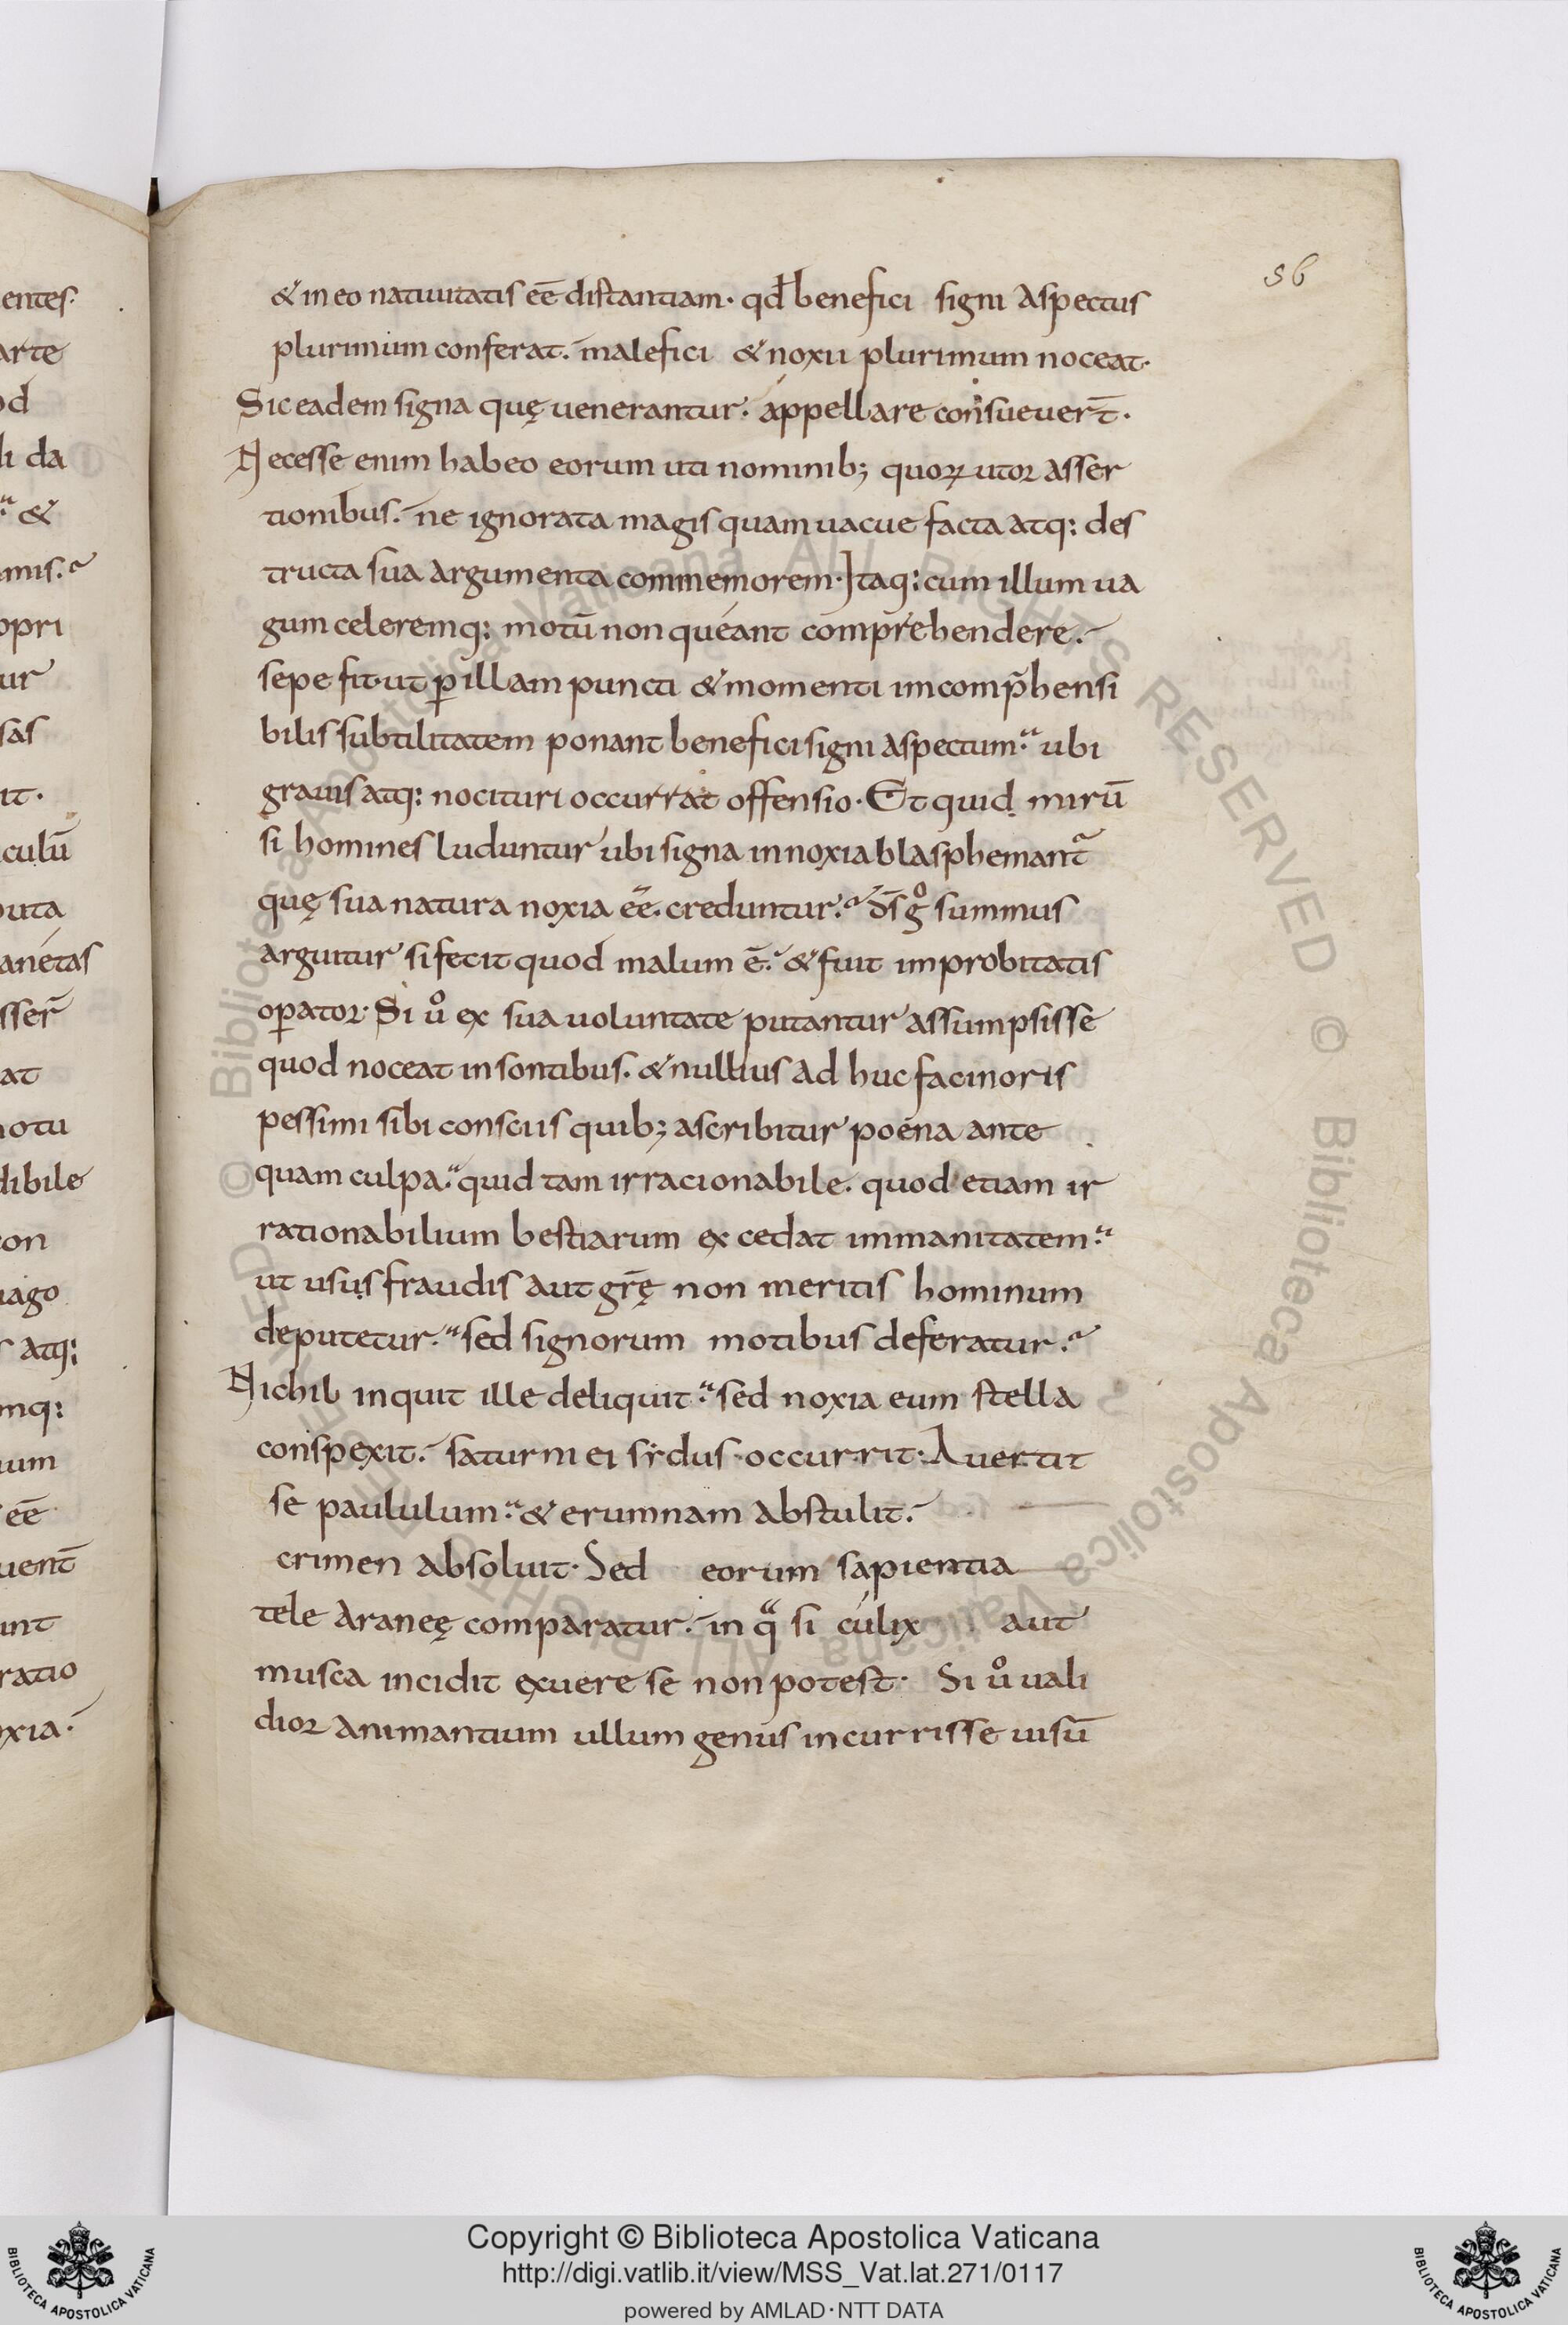 56
& in eo natiuitatis eē distantiam· qđ benefici signi aspectus
plurimum conferat. malefici & noxii plurimum noceat·
Sic eadem signa quę uenerantur. appellare consueuer̄t·
Necesse enim habeo eorum uti nominib; quoꝝ utor asser
tionibus. ne ignorata magis quam uacue facta atq: des
tructa sua argumenta commemorem· Itaq: cum illum ua
gum celeremq: motū non queant comprehendere.
sepe fit ut ꝑ illam puncti & momenti incomp̄hensi
bilis subtilitatem ponant benefici signi aspectum. ubi
grauis atq: nocituri occurrat offensio· Et quid mirū
si homines luduntur ubi signa innoxia blasphemant̃
quę sua natura noxia eē creduntur. d̄s gͦ summus
arguitur si fecit quod malum ē. & fuit improbitatis
oꝑator· Si uͦ ex sua uoluntate putantur assumpsisse
quod noceat insontibus. & nullius ad huc facinoris
pessimi sibi consciis quib; ascribitur poena ante
quam culpa. quid tam irracionabile. quod etiam ir
rationabilium bestiarum excedat immanitatem.
ut usus fraudis aut gr̄ę non meritis hominum
deputetur. sed signorum motibus deferatur.
Nichil inquit ille deliquit. sed noxia eum stella
conspexit. saturni ei sydus occurrit· Auertit
se paululum. & erumnam abstulit.
crimen absoluit· Sed eorum sapientia
tele araneę comparatur. in qᵃ si culix aut
musca incidit exuere se non potest· Si uͦ uali
dior animantium ullum genus incurrisse uisū
entes·
arte
od
li da
&
mis.
opri
ur
sas
it·
culū
puta
anetas
sser̄
at
motu
dibile
con
uago
s atq:
mq:
uum
eē
uent̄
unt
ratio
oxia·
© Biblioteca Apostolica Vaticana ALL RIGHTS RESERVED © Biblioteca Apostolica Vaticana ALL RIGHTS RESERVED
Copyright © Biblioteca Apostolica Vaticana
http://digi.vatlib.it/view/MSS_Vat.lat.271/0117
powered by AMLAD·NTT DATA
BIBLIOTECA APOSTOLICA VATICANA
BIBLIOTECA APOSTOLICA VATICANA